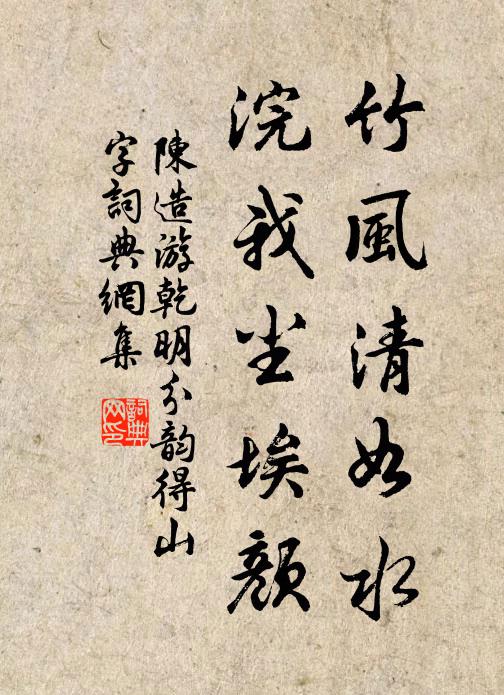 竹風清如水
浣我尘埃顏
陳造游乾明分韵得山
字詞典網集
詞典
网印